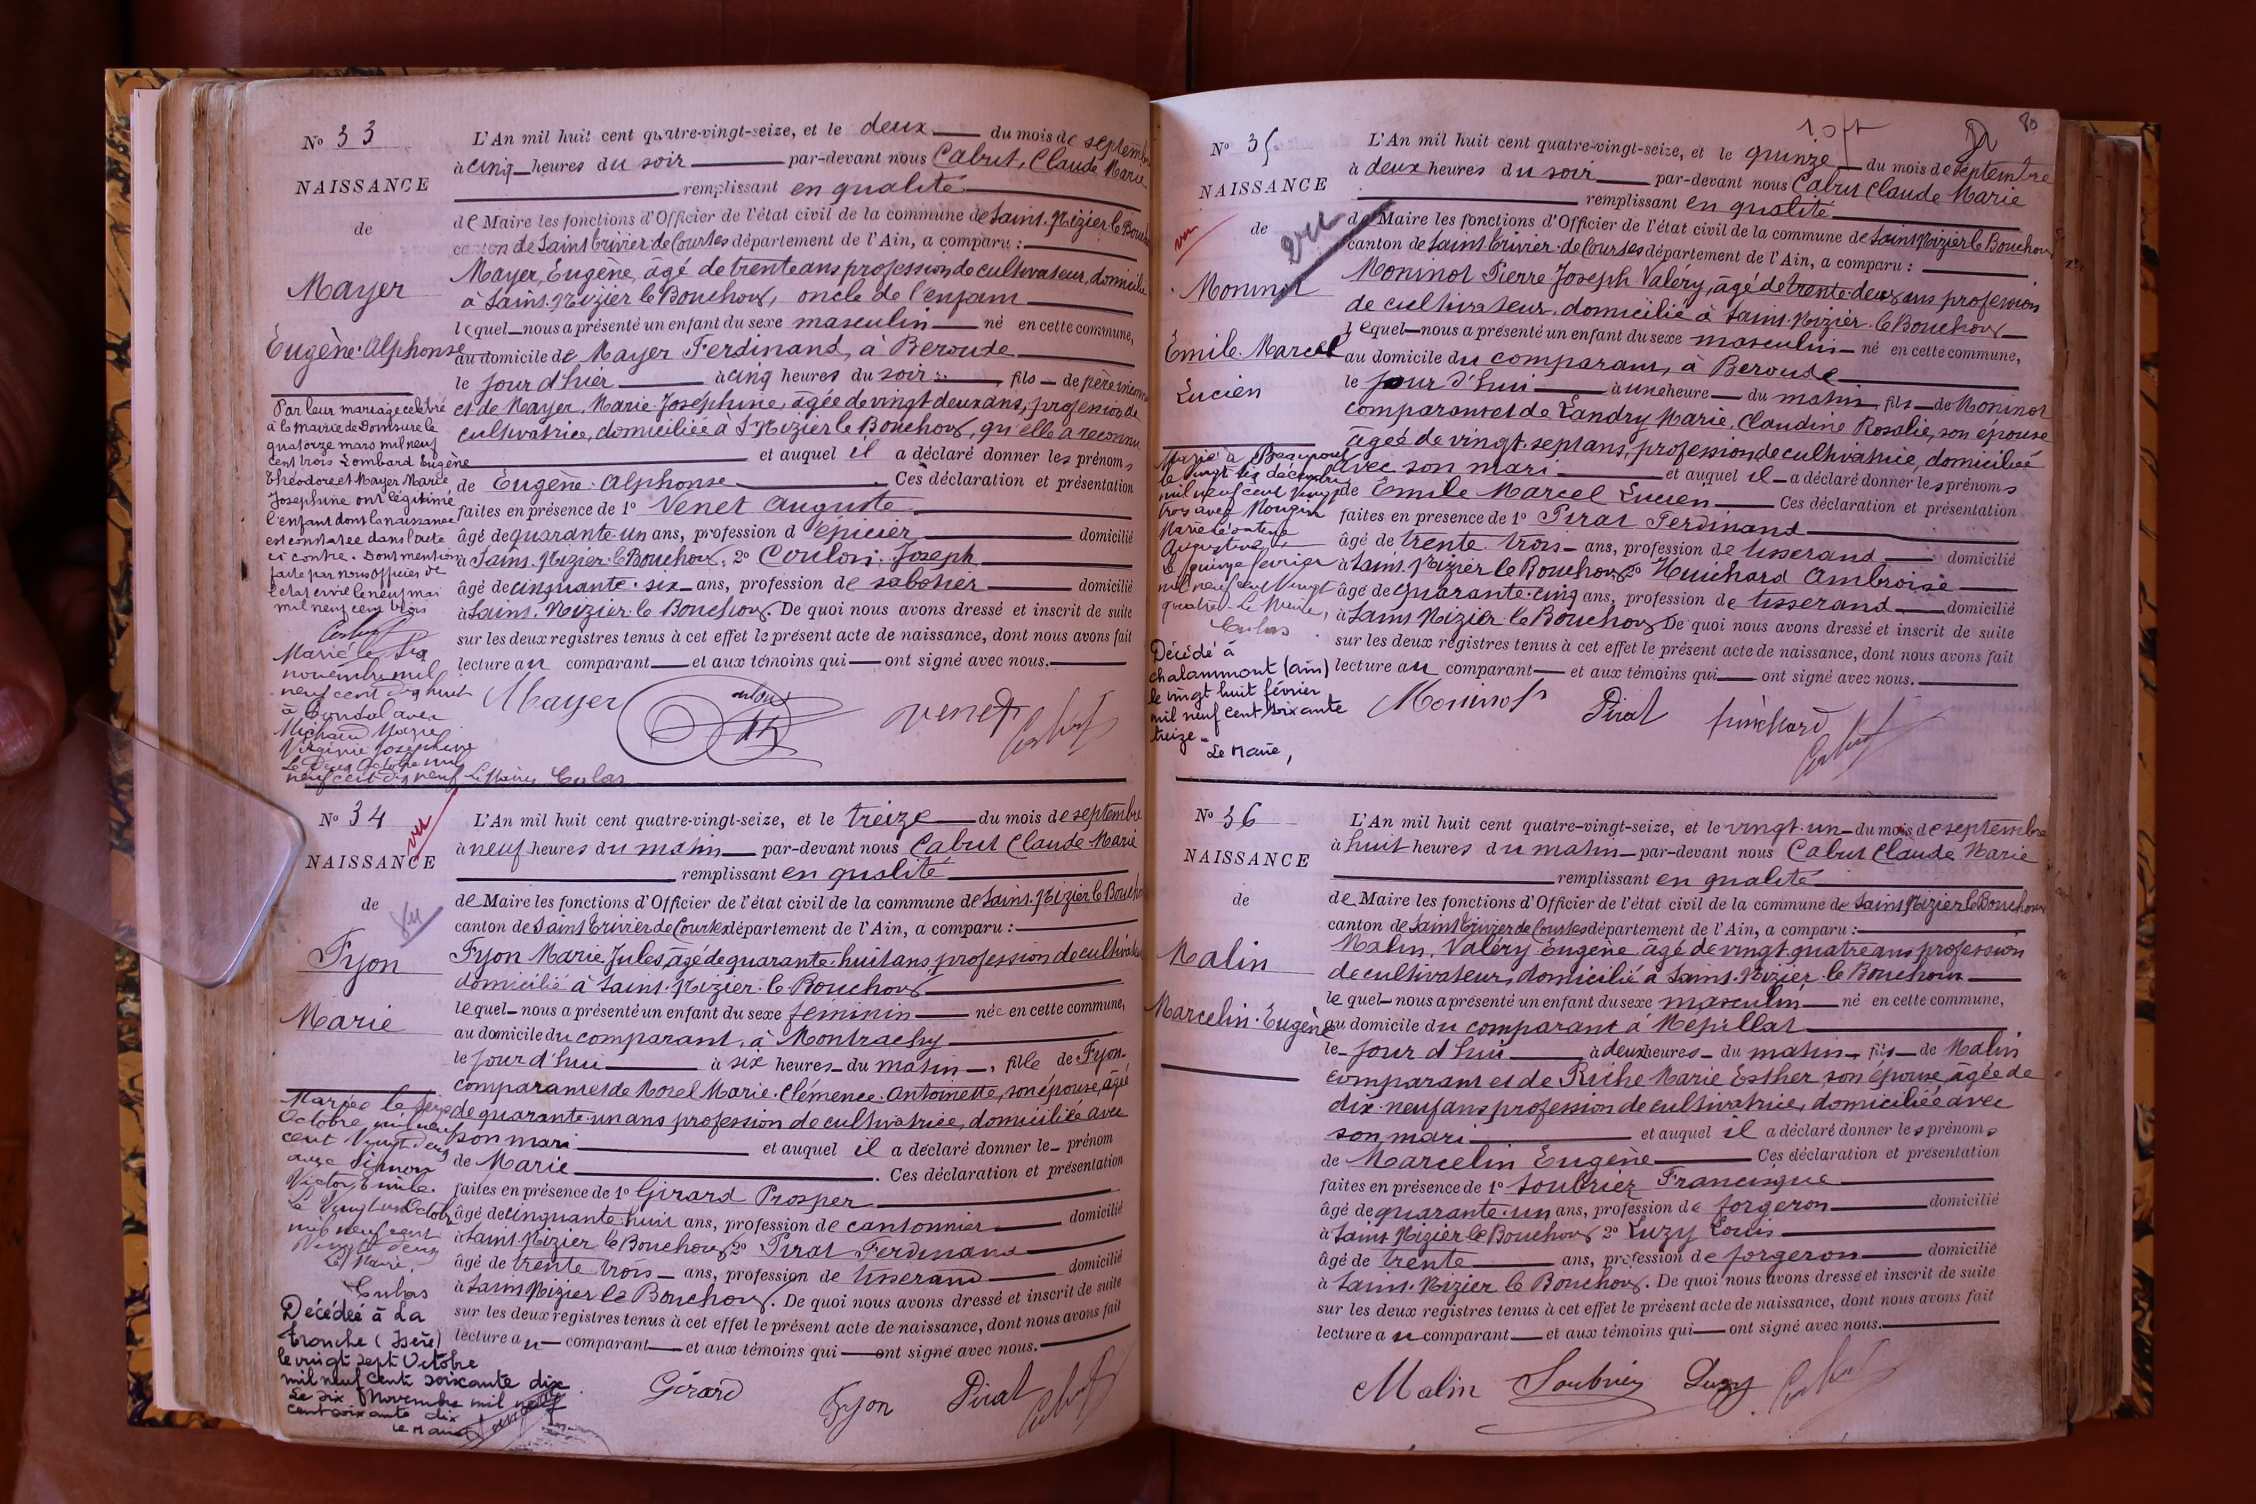 No 33
NAISSANCE
de
Mayer
Eugène-Alphonse
Par leur mariage célébré
à la mairie de Domsure le
quatorze mars mil neuf
cent trois Lombard Eugène
Théodore et Mayer Marie
Josephine ont légitimé
l'enfant dont la naissance
est constatée dans l'acte
ci contre. Dont mention
faite par nous officier de
l'état civil le neuf mai
mil neuf cent trois
Marié le six
novembre mil
neuf cent dix huit
à Condal avec
Michaud Marie
Virginie Josephine
Le Deux Octobre mil
neuf cent dix neuf Le Maire, Culas
L'An mil huit cent quatre-vingt-seize, et le deux du mois de septembre
à cinq heures du soir par-devant nous Cabut, Claude Marie
remplissant en qualité
de Maire les fonctions d'Officier de l'état civil de la commune de Saint-Nizier-le-Bouchoux
canton de Saint Trivier de Courtes département de l'Ain, a comparu :
Mayer, Eugène, âgé de trente ans profession de cultivateur, domicilié
à Saint-Nizier le Bouchoux, oncle de l'enfant
lequel nous a présenté un enfant du sexe masculin né en cette commune,
au domicile de Mayer Ferdinand, à Beroude
le jour d'hier à cinq heures du soir, fils de père inconnu
et de Mayer, Marie Josephine, âgée de vingt deux ans, profession de
cultivatrice, domiciliée à St Nizier le Bouchoux, qu'elle a reconnu
et auquel il a déclaré donner les prénoms
de Eugène-Alphonse. Ces déclaration et présentation
faites en présence de 1º Venet Auguste
âgé de quarante-un ans, profession d'épicier domicilié
à Saint-Nizier-le-Bouchoux, 2º Coulon Joseph
âgé de cinquante-six ans, profession de sabotier domicilié
à Saint-Nizier-le Bouchoux. De quoi nous avons dressé et inscrit de suite
sur les deux registres tenus à cet effet le présent acte de naissance, dont nous avons fait
lecture au comparant et aux témoins qui ont signé avec nous.
Mayer Coulon Venet Cabut
No 34
vu
NAISSANCE
de
Vu
Fyon
Marie
Mariée le seize
Octobre mil neuf
cent Vingt deux
avec Simon
Victor Emile.
Le Vingt un Octobre
mil neuf cent
Vingt deux
Le Maire,
Culas
Décédée à La
Tronche (Isère)
le vingt sept Octobre
mil neuf cent soixante dix
Le six Novembre mil neuf
cent soixante dix
Le Maire
L'An mil huit cent quatre-vingt-seize, et le treize du mois de septembre
à neuf heures du matin par-devant nous Cabut Claude Marie
remplissant en qualité
de Maire les fonctions d'Officier de l'état civil de la commune de Saint-Nizier le Bouchoux
canton de Saint Trivier de Courtes département de l'Ain, a comparu :
Fyon Marie Jules, âgé de quarante-huit ans, profession de cultivateur
domicilié à Saint-Nizier-le Bouchoux
lequel nous a présenté un enfant du sexe féminin née en cette commune,
au domicile du comparant, à Montrachy
le jour d'hui à six heures du matin, fille de Fyon
comparant et de Morel Marie-Clémence-Antoinette, son épouse, âgée
de quarante-un ans profession de cultivatrice, domiciliée avec
son mari et auquel il a déclaré donner le prénom
de Marie. Ces déclaration et présentation
faites en présence de 1º Girard Prosper
âgé de cinquante huit ans, profession de cantonnier domicilié
à Saint-Nizier le Bouchoux 2º Pirat Ferdinand
âgé de trente trois ans, profession de tisserand domicilié
à Saint Nizier le Bouchoux. De quoi nous avons dressé et inscrit de suite
sur les deux registres tenus à cet effet le présent acte de naissance, dont nous avons fait
lecture au comparant et aux témoins qui ont signé avec nous.
Girard Fyon Pirat Cabut
80
No 35
NAISSANCE
de
vu
vu
Moninot
Emile-Marcel
Lucien
Marié à Beaupont
le vingt six décembre
mil neuf cent vingt
trois avec Mougin
Marie Céontine
Augustine
Le quinze février
mil neuf cent vingt
quatre. Le Maire,
Culas
Décédé à
Chalammont (Ain)
le vingt huit février
mil neuf cent soixante
treize
Le Maire,
L'An mil huit cent quatre-vingt-seize, et le quinze du mois de septembre
à deux heures du soir par-devant nous Cabut Claude Marie
remplissant en qualité
de Maire les fonctions d'Officier de l'état civil de la commune de Saint Nizier le Bouchoux
canton de Saint Trivier-de Courtes département de l'Ain, a comparu :
Moninot Pierre Joseph Valéry, âgé de trente-deux ans profession
de cultivateur, domicilié à Saint-Nizier-le Bouchoux
lequel nous a présenté un enfant du sexe masculin né en cette commune,
au domicile du comparant, à Beroude
le jour d'hui à une heure du matin, fils de Moninot
comparant et de Landry Marie, Claudine Rosalie, son épouse
âgée de vingt-sept ans, profession de cultivatrice, domiciliée
avec son mari et auquel il a déclaré donner les prénoms
de Emile Marcel Lucien Ces déclaration et présentation
faites en présence de 1º Pirat Ferdinand
âgé de trente-trois ans, profession de tisserand domicilié
à Saint-Nizier le Bouchoux 2º Huichard Ambroise
âgé de quarante-cinq ans, profession de tisserand domicilié
à Saint Nizier le Bouchoux De quoi nous avons dressé et inscrit de suite
sur les deux registres tenus à cet effet le présent acte de naissance, dont nous avons fait
lecture au comparant et aux témoins qui ont signé avec nous.
Moninot Pirat Huichard Cabut
No 36
NAISSANCE
de
Malin
Marcelin-Eugène
L'An mil huit cent quatre-vingt-seize, et le vingt-un du mois de septembre
à huit heures du matin par-devant nous Cabut Claude Marie
remplissant en qualité
de Maire les fonctions d'Officier de l'état civil de la commune de Saint Nizier le Bouchoux
canton de Saint Trivier de Courtes département de l'Ain, a comparu :
Malin, Valéry Eugène âgé de vingt quatre ans profession
de cultivateur, domicilié à Saint-Nizier-le Bouchoux
lequel nous a présenté un enfant du sexe masculin né en cette commune,
au domicile du comparant à Nepillat
le jour d'hui à deux heures du matin, fils de Malin
comparant et de Riche Marie Esther son épouse âgée de
dix-neuf ans profession de cultivatrice, domiciliée avec
son mari et auquel il a déclaré donner les prénoms
de Marcelin Eugène Ces déclaration et présentation
faites en présence de 1º Soubriez Francisque
âgé de quarante-un ans, profession de forgeron domicilié
à Saint Nizier le Bouchoux 2º Luzy Louis
âgé de trente ans, profession de forgeron domicilié
à Saint-Nizier le Bouchoux. De quoi nous avons dressé et inscrit de suite
sur les deux registres tenus à cet effet le présent acte de naissance, dont nous avons fait
lecture au comparant et aux témoins qui ont signé avec nous.
Malin Soubriez Luzy Cabut